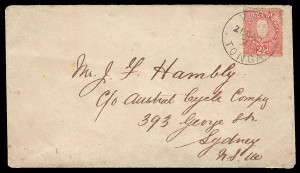 TONGA
Mr. J. F. Hambly
C/o Austral Cycle Compy
393 George Str
Sydney
N.S.W